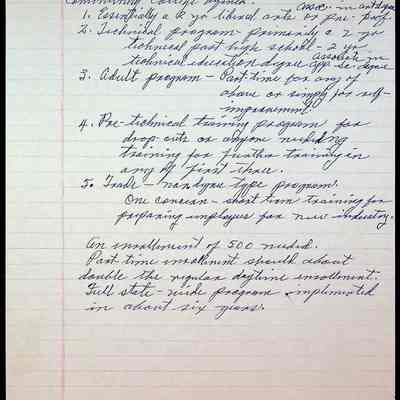 Community College
assoc. in arts degree
1. Essentially a 2 yr liberal arts or pre-prof.
2. Technical program primarily a 2 yr
technical post high school - 2 yr
technical education degree associate in
app. sc. degree
3. Adult program - Part time for any of
above or simply for self-
improvement
4. Pre-technical training program for
drop outs or anyone needing
training for further training in
any of first three.
5. Trade - non degree type program.
One concern - short term training for
preparing employees for new industry.
An enrollment of 500 needed.
Part time enrollment should about
double the regular daytime enrollment.
Full state-wide program implemented
in about six years.